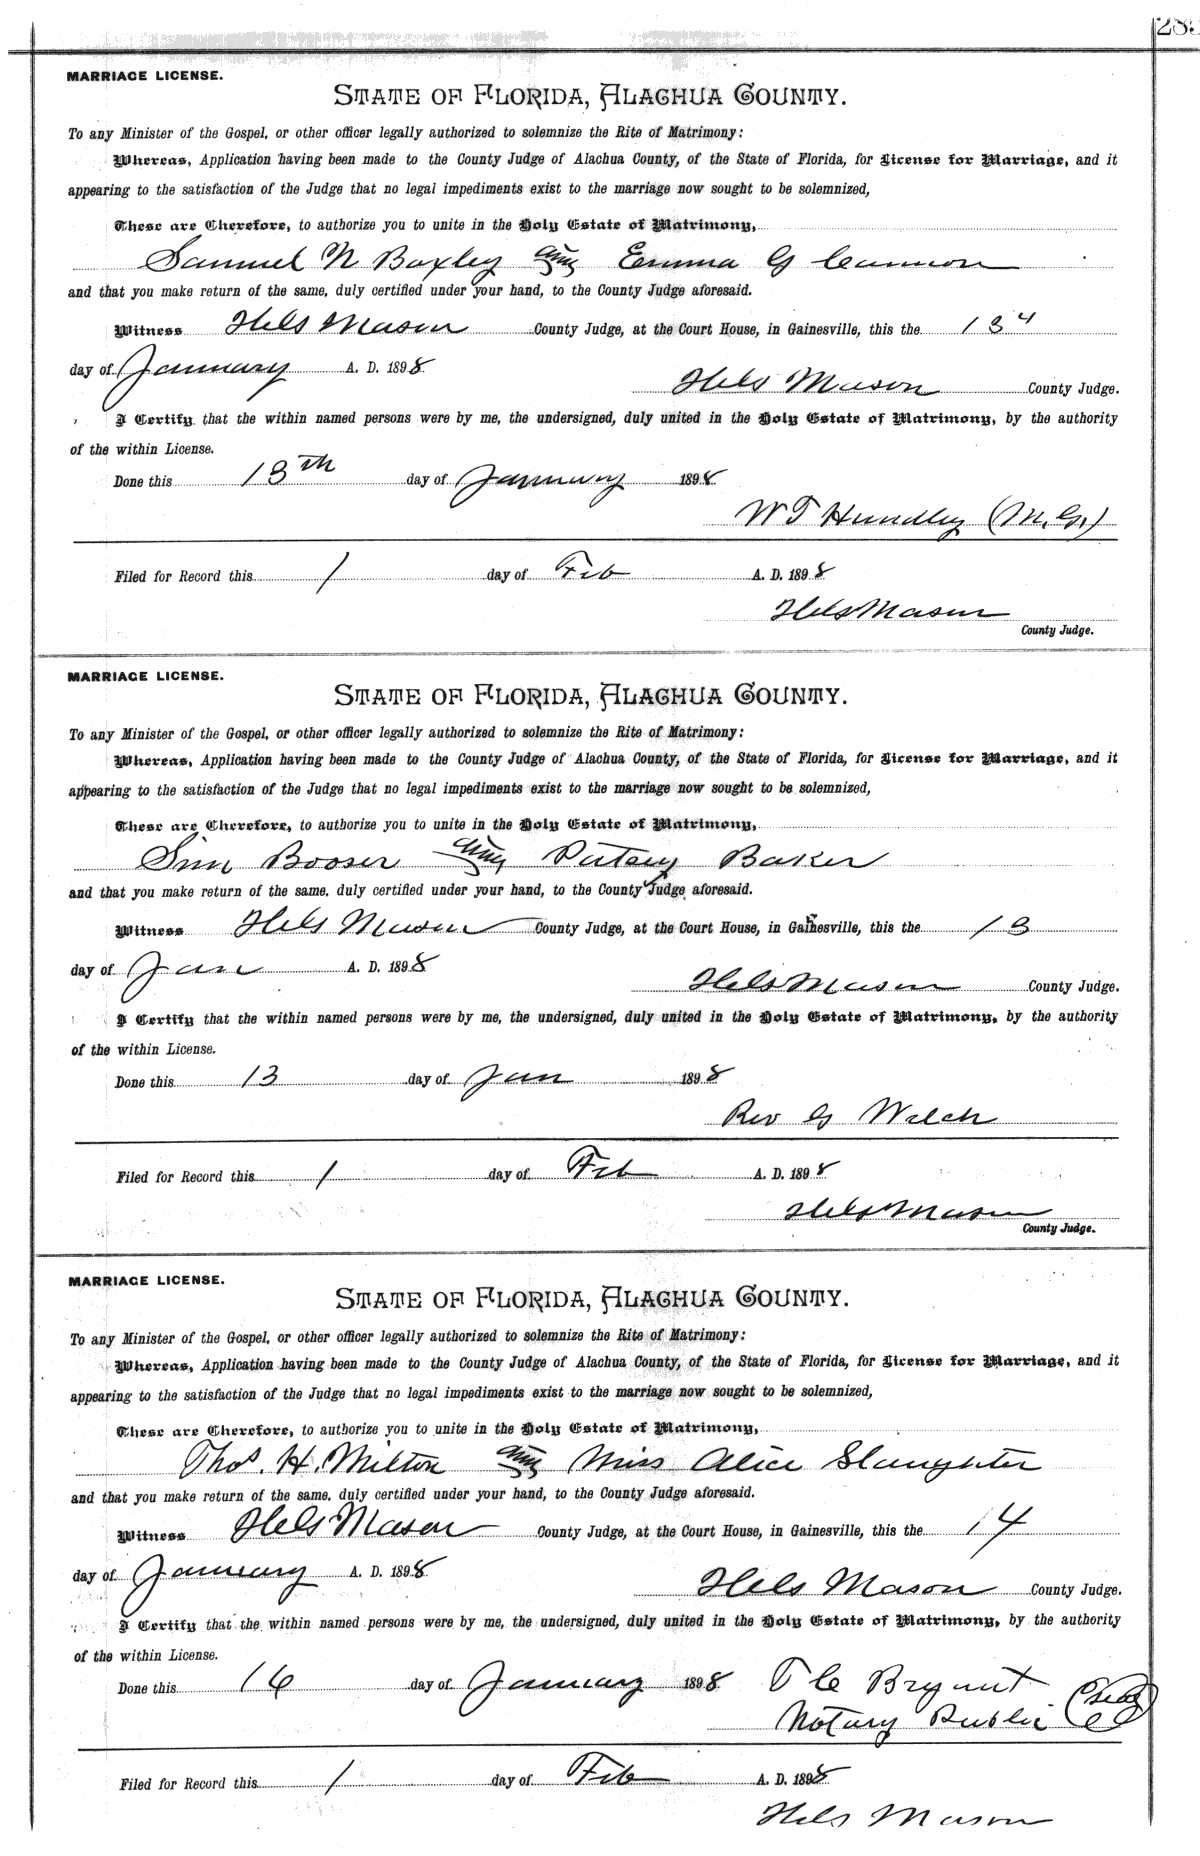 MARRIAGE LICENSE.
STATE OF FLORIDA, ALACHUA COUNTY.
To any Minister of the Gospel, or other officer legally authorized to solemnize the Rite of Matrimony:
Whereas, Application having been made to the County Judge of Alachua County, of the State of Florida, for License for Marriage, and it
appearing to the satisfaction of the Judge that no legal impediments exist to the marriage now sought to be solemnized,
These are Therefore, to authorize you to unite in the Holy Estate of Matrimony,
Samuel N Boxley and Emma G Cannon
and that you make return of the same, duly certified under your hand, to the County Judge aforesaid.
Witness Hels Mason County Judge, at the Court House, in Gainesville, this the 13
day of January A. D. 1898
Hels Mason County Judge.
I Certify that the within named persons were by me, the undersigned, duly united in the Holy Estate of Matrimony, by the authority
of the within License.
Done this 13th day of January 1898
W T Hundley (M.G.)
Filed for Record this 1 day of Feb A. D. 1898
Hels Mason
County Judge.
MARRIAGE LICENSE.
STATE OF FLORIDA, ALACHUA COUNTY.
To any Minister of the Gospel, or other officer legally authorized to solemnize the Rite of Matrimony:
Whereas, Application having been made to the County Judge of Alachua County, of the State of Florida, for License for Marriage, and it
appearing to the satisfaction of the Judge that no legal impediments exist to the marriage now sought to be solemnized,
These are Therefore, to authorize you to unite in the Holy Estate of Matrimony,
Sim Booser and Baker
and that you make return of the same, duly certified under your hand, to the County Judge aforesaid.
Witness Hels Mason County Judge, at the Court House, in Gainesville, this the 13
day of Jan A. D. 1898
Hels Mason County Judge.
I Certify that the within named persons were by me, the undersigned, duly united in the Holy Estate of Matrimony, by the authority
of the within License.
Done this 13 day of Jan 1898
Rev G Welch
Filed for Record this 1 day of Feb A. D. 1898
Hels Mason
County Judge.
MARRIAGE LICENSE.
STATE OF FLORIDA, ALACHUA COUNTY.
To any Minister of the Gospel, or other officer legally authorized to solemnize the Rite of Matrimony:
Whereas, Application having been made to the County Judge of Alachua County, of the State of Florida, for License for Marriage, and it
appearing to the satisfaction of the Judge that no legal impediments exist to the marriage now sought to be solemnized,
These are Therefore, to authorize you to unite in the Holy Estate of Matrimony,
Thos. H. Milton and Miss Alice Slaughter
and that you make return of the same, duly certified under your hand, to the County Judge aforesaid.
Witness Hels Mason County Judge, at the Court House, in Gainesville, this the 14
day of January A. D. 1898
Hels Mason County Judge.
I Certify that the within named persons were by me, the undersigned, duly united in the Holy Estate of Matrimony, by the authority
of the within License.
Done this 16 day of January 1898 T C Bryant
Notary Public (Seal)
Filed for Record this 1 day of Feb A. D. 1898
Hels Mason